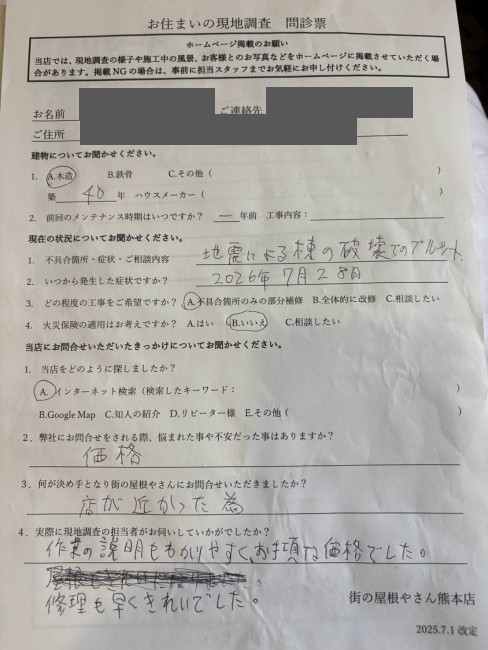 お住まいの現地調査 問診票
ホームページ掲載のお願い
当店では、現地調査の様子や施工中の風景、お客様とのお写真などをホームページに掲載させていただく場
合があります。掲載NGの場合は、事前に担当スタッフまでお気軽にお申し付けください。
お名前 ご連絡先
ご住所
建物についてお聞かせください。
1. A.木造 B.鉄骨 C.その他（ ）
築 40 年 ハウスメーカー（ ）
2. 前回のメンテナンス時期はいつですか？ ― 年前 工事内容：
現在の状況についてお聞かせください。
1. 不具合箇所・症状・ご相談内容 地震による棟の破壊でのブルーシート
2. いつから発生した症状ですか？ 2026年7月28日
3. どの程度の工事をご希望ですか？ A.不具合箇所のみの部分補修 B.全体的に改修 C.相談したい
4. 火災保険の適用はお考えですか？ A.はい B.いいえ C.相談したい
当店にお問合せいただいたきっかけについてお聞かせください。
1. 当店をどのように探しましたか？
A.インターネット検索（検索したキーワード： ）
B.Google Map C.知人の紹介 D.リピーター様 E.その他（ ）
2．弊社にお問合せをされる際、悩まれた事や不安だった事はありますか？
価格
3．何が決め手となり街の屋根やさんにお問合せいただきましたか？
店が近かった為
4．実際に現地調査の担当者がお伺いしていかがでしたか？
作業の説明もわかりやすく、お手頃な価格でした。
修理も早くきれいでした。
街の屋根やさん熊本店
2025.7.1 改定